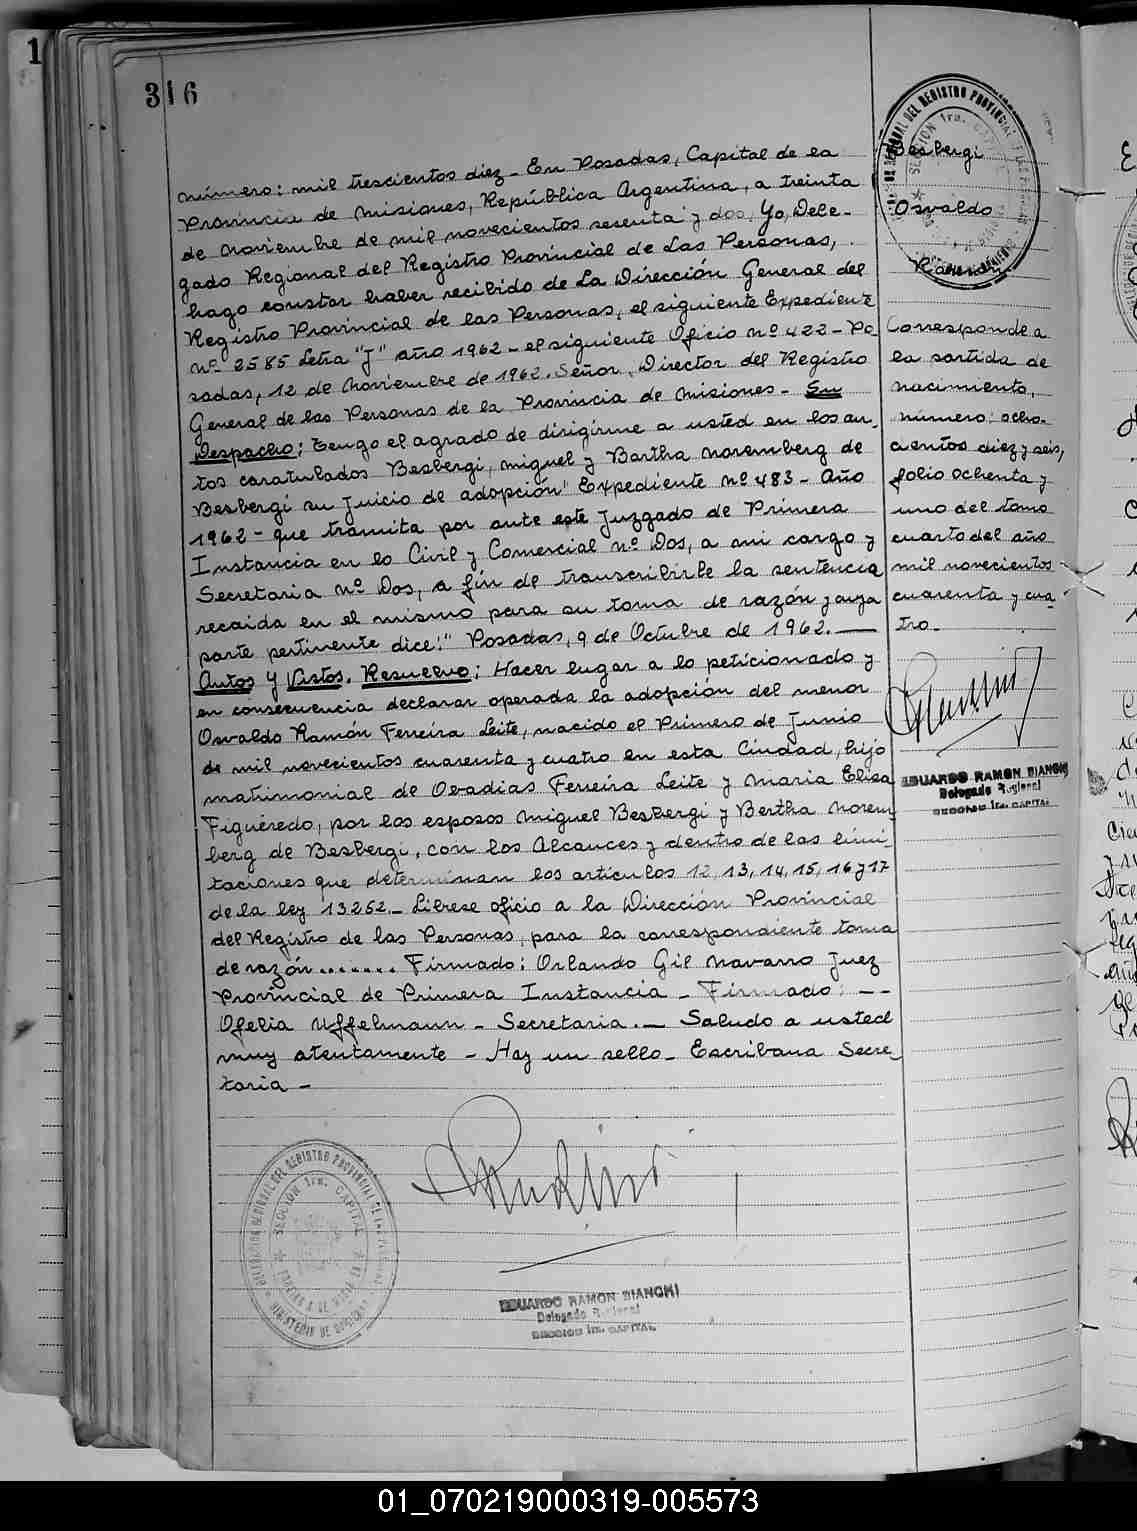 316
número: mil trescientos diez - En Posadas, Capital de la
Provincia de Misiones, República Argentina, a treinta
de Noviembre de mil novecientos sesenta y dos, Yo, Dele-
gado Regional del Registro Provincial de Las Personas,
hago constar haber recibido de La Dirección General del
Registro Provincial de las Personas, el siguiente Expediente
nº 2585 Letra "J" año 1962 - el siguiente Oficio nº 422 - Po-
sadas, 12 de Noviembre de 1962. Señor, Director del Registro
General de las Personas de la Provincia de Misiones - Su
Despacho: Tengo el agrado de dirigirme a usted en los au-
tos caratulados Besbergi, Miguel y Bertha Noremberg de
Besbergi su Juicio de adopción" Expediente nº 483 - Año
1962 - que tramita por ante este Juzgado de Primera
Instancia en lo Civil y Comercial nº Dos, a mi cargo y
Secretaria nº Dos, a fin de transcribirle la sentencia
recaida en el mismo para su toma de razón y cuya
parte pertinente dice: "Posadas, 9 de Octubre de 1962. —
Autos y Vistos. Resuelvo: Hacer lugar a lo peticionado y
en consecuencia declarar operada la adopción del menor
Osvaldo Ramón Ferreira Leite, nacido el Primero de Junio
de mil novecientos cuarenta y cuatro en esta Ciudad, hijo
matrimonial de Obadias Ferreira Leite y Maria Elisa
Figuéredo, por los esposos Miguel Besbergi y Bertha Norem
berg de Besbergi, con los Alcances y dentro de las limi-
taciones que determinan los artículos 12, 13, 14, 15, 16 y 17
de la ley 13252. - Líbrese oficio a la Dirección Provincial
del Registro de las Personas, para la correspondiente toma
de razón ....... Firmado: Orlando Gil Navarro Juez
Provincial de Primera Instancia - Firmado: --
Ofelia Uffelmann - Secretaria. - Saludo a usted
muy atentamente - Hay un sello - Escribana Secre-
taria -
Besbergi
Osvaldo
Ramón
Corresponde a
la partida de
nacimiento,
número: ocho-
cientos diez y seis,
folio ochenta y
uno del tomo
cuarto del año
mil novecientos
cuarenta y cua-
tro.
EDUARDO RAMON BIANCHI
Delegado Regional
SECCION 1ra. CAPITAL
EDUARDO RAMON BIANCHI
Delegado Regional
SECCION 1ra. CAPITAL
DEL REGISTRO PROVINCIAL
SECCION 1ra. CAPITAL
01_070219000319-005573